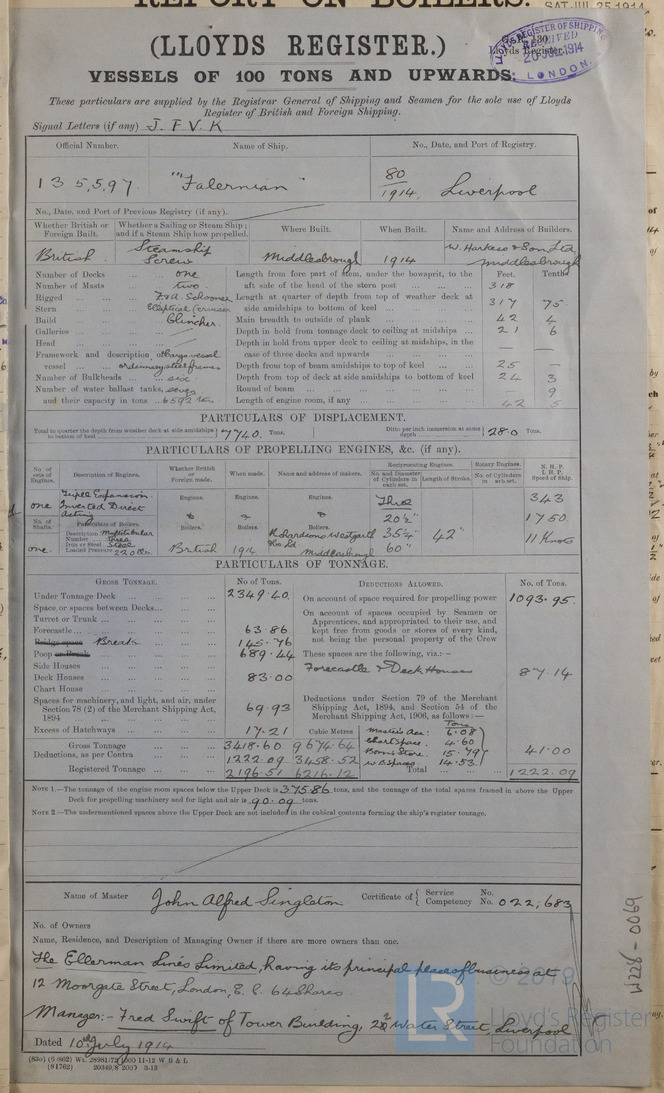 REPORT ON BOILERS.
SAT. JUL. 25 1914
(LLOYDS REGISTER.)
Lloyds Register.
LLOYDS REGISTER OF SHIPPING
RECEIVED
LONDON.
VESSELS OF 100 TONS AND UPWARDS.
These particulars are supplied by the Registrar General of Shipping and Seamen for the sole use of Lloyds
Register of British and Foreign Shipping.
Signal Letters (if any) J. F. V. K
Official Number. Name of Ship. No., Date, and Port of Registry.
135,597. "Falernian" 80/1914, Liverpool
No., Date, and Port of Previous Registry (if any).
Whether British or Foreign Built. Whether a Sailing or Steam Ship; and if a Steam Ship how propelled. Where Built. When Built. Name and Address of Builders.
British Steamship Screw Middlesbrough 1914 W. Harkess & Son Ltd Middlesbrough
Number of Decks one Length from fore part of stem, under the bowsprit, to the Feet. Tenths
Number of Masts two aft side of the head of the stern post 318
Rigged F & A Schooner Length at quarter of depth from top of weather deck at
Stern Elliptical (cruiser side amidships to bottom of keel 317 75
Build Clincher. Main breadth to outside of plank 42 4
Galleries Depth in hold from tonnage deck to ceiling at midships 21 6
Head Depth in hold from upper deck to ceiling at midships, in the
Framework and description of case of three decks and upwards — —
vessel ordinary steel frames Depth from top of beam amidships to top of keel 25 —
Number of Bulkheads six Depth from top of deck at side amidships to bottom of keel 24 3
Number of water ballast tanks, seven Round of beam 9
and their capacity in tons 659 Length of engine room, if any 42 5
PARTICULARS OF DISPLACEMENT.
Total to quarter the depth from weather deck at side amidships to bottom of keel 7740. Tons. Ditto per inch immersion at same depth 28.0 Tons.
PARTICULARS OF PROPELLING ENGINES, &c. (if any).
No. of sets of Engines. Description of Engines. Whether British or Foreign made. When made. Name and address of makers. Reciprocating Engines. Rotary Engines. N. H. P.
No. and Diameter of Cylinders in each set. Length of Stroke. No. of Cylinders in each set. I. H. P. Speed of Ship.
one Triple Expansion. Inverted Direct acting Engines. Engines. Engines. Three 343
No. of Shafts. Particulars of Boilers. Boilers. Boilers. Boilers. 20½" 1750
Description Multitubular Richardsons Westgarth 35¼" 42" 11 Knots
Number three
Iron or Steel Steel
one. Loaded Pressure 220 lbs. British 1914 Middlesbrough 60"
PARTICULARS OF TONNAGE.
GROSS TONNAGE. No of Tons. DEDUCTIONS ALLOWED. No. of Tons.
Under Tonnage Deck 2349.40. On account of space required for propelling power 1093.95.
Space or spaces between Decks On account of spaces occupied by Seamen or
Turret or Trunk Apprentices, and appropriated to their use, and
Forecastle 63.86 kept free from goods or stores of every kind,
Bridge space Break 145.76 not being the personal property of the Crew
Poop or Break 689.44 These spaces are the following, viz.:—
Side Houses Forecastle & Deck Houses 87.14
Deck Houses 83.00
Chart House
Spaces for machinery, and light, and air, under Section 78 (2) of the Merchant Shipping Act, 1894 69.93 Deductions under Section 79 of the Merchant Shipping Act, 1894, and Section 54 of the Merchant Shipping Act, 1906, as follows:—
Excess of Hatchways 17.21 Cubic Metres Master's Acc: Tons 6.08
Chart space. 4.60
Gross Tonnage 3418.60 9674.64 Bosn's Store. 15.79
Deductions, as per Contra 1222.09 3458.52 W B Spaces 14.53. 41.00
Registered Tonnage 2196.51 6216.12 Total 1222.09
NOTE 1.—The tonnage of the engine room spaces below the Upper Deck is 375.86 tons, and the tonnage of the total spaces framed in above the Upper
Deck for propelling machinery and for light and air is 90.09 tons.
NOTE 2.—The undermentioned spaces above the Upper Deck are not included in the cubical contents forming the ship's register tonnage.
Name of Master John Alfred Singleton Certificate of Service Competency No. No. 022,683
No. of Owners
Name, Residence, and Description of Managing Owner if there are more owners than one.
The Ellerman Lines Limited, having its principal place of business at
12 Moorgate Street, London, E.C. 64 Shares.
Manager:- Fred Swift of Tower Building, 22 Water Street, Liverpool
Dated 10th July 1914
(81762) 20349/8 2000 3-13
W228-0069
LR
© 2019
Lloyd's Register
Foundation